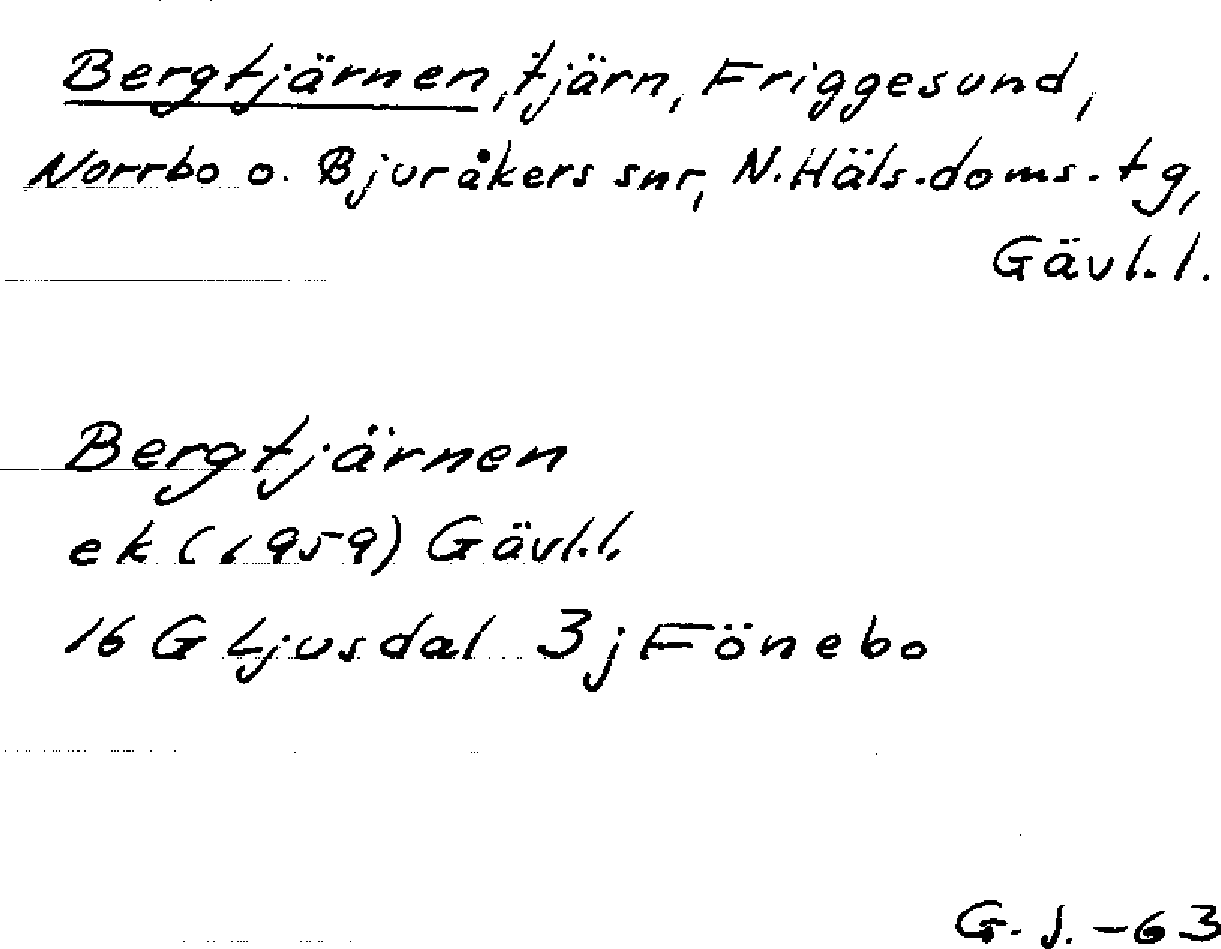 Bergtjärnen, tjärn, Friggesund,
Norrbo o. Bjuråkers snr, N. Häls. doms. tg,
Gävl. l.
Bergtjärnen
ek (1959) Gävl. l.
16 G Ljusdal 3 j Fönebo
G. J. -63